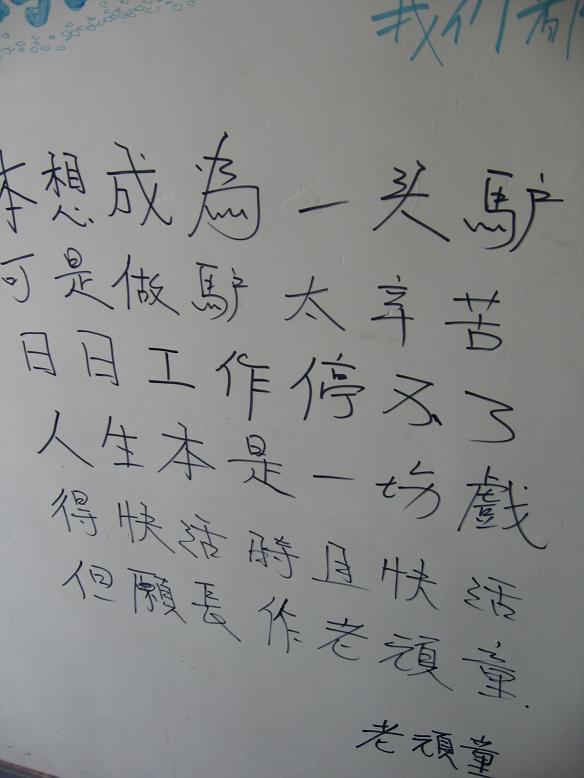 我们
本想成為一头馿
可是做馿太辛苦
日日工作停不了
人生本是一场戲
得快活時且快活
但願長作老頑童.
老頑童